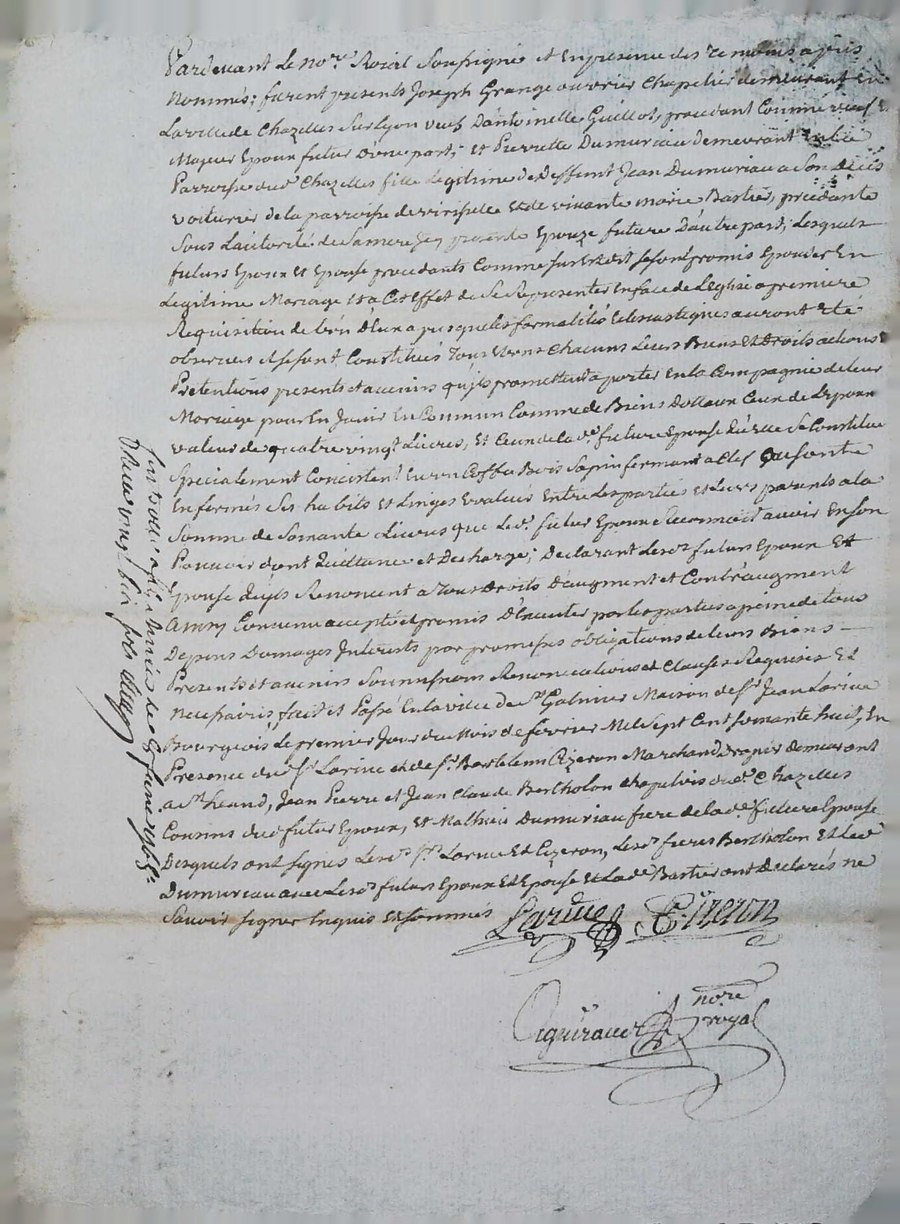 Pardevant Le no.re Roial Soussigné et En presence des Temoins apres
Nommés; furent presents Joseph Grange ouvrier Chapelier demeurant En
La ville de Chazelles Sur Lyon veuf D'antoinette Guillot, procedant Comme veuf &
Majeur Epoux futur D'une part; et Pierrette Dumuriau demeurant
Parroisse dud.t Chazelles fille Legitime de Deffunt Jean Dumuriau a Son Decés
voiturier de la parroisse de et de vivante marie Bartier, procedante
Sous L'autorité de Samere Icy presente Epouze future D'autre part; Lesquels
futurs Epoux et Epouse procedants Comme Sus Est dit se sont promis Epouser En
Legitime Mariage et a Cet Effet de Se Representer En face de L'Eglise a premiere
Requisition de L'un D'Eux apres que les formalités Eclesiastiques auront Eté
observées et se sont Constitués Tous et uns Chacuns Leurs Biens et Droits actions &
Pretentions presents et avenirs qu'ils promettent aporter En la Compagnie de leur
Mariage pour En Jouir En Commun Comme de Biens Dottaux Ceux de L'Epoux
valeur de quatre vingt Livres, et Ceux de la d.e future Epouse qu'elle Se Constitue
Specialement Concistent En un Coffre Bois Sapin fermant a Clef Ou Sont
Enfermés Ses habits et Linges Evalués Entre Les parties et Leurs parents a la
Somme de Soixante Livres que Le d. futur Epoux Reconnoit avoir En son
Pouvoir dont Quittance et Decharge; Declarant Lesd.s futurs Epoux Et
Epouse qu'ils Renoncent a Tous Droits D'augment et Contr'augment
Ainsy Convenu accepté et promis D'Executer par les parties a peine de tous
Depens Domages Interets par promesses obligations de leurs Biens
Presents et avenirs Soumissions Renonciations et Clauses Requises Et
Necessaires, fait et Passé En la ville de S.t Galmier Maison de S.r Jean Larive
Bourgeois Le premier Jour du Mois de fevrier Mil Sept Cent soixante huit, En
Presence dud. S.r Larive et de S.r Barthelemi Cizeron Marchand Drapier demeurant
a S.t heand, Jean Pierre et Jean Claude Bertholon chapeliers dud. Chazelles
Cousins dud. futur Epoux, et Mathieu Dumuriau frere de la d.e future Epouse
Desquels ont signés Lesd.s S.rs Larive et Cizeron, Lesd.s freres Bertholon et Led.
Dumuriau avec Lesd.s futurs Epoux et Epouse et La d.e Bartier ont Declarés ne
Savoir signer Enquis et Sommés
Larive Cizeron
no.re
royal
1768
Reçu vingt